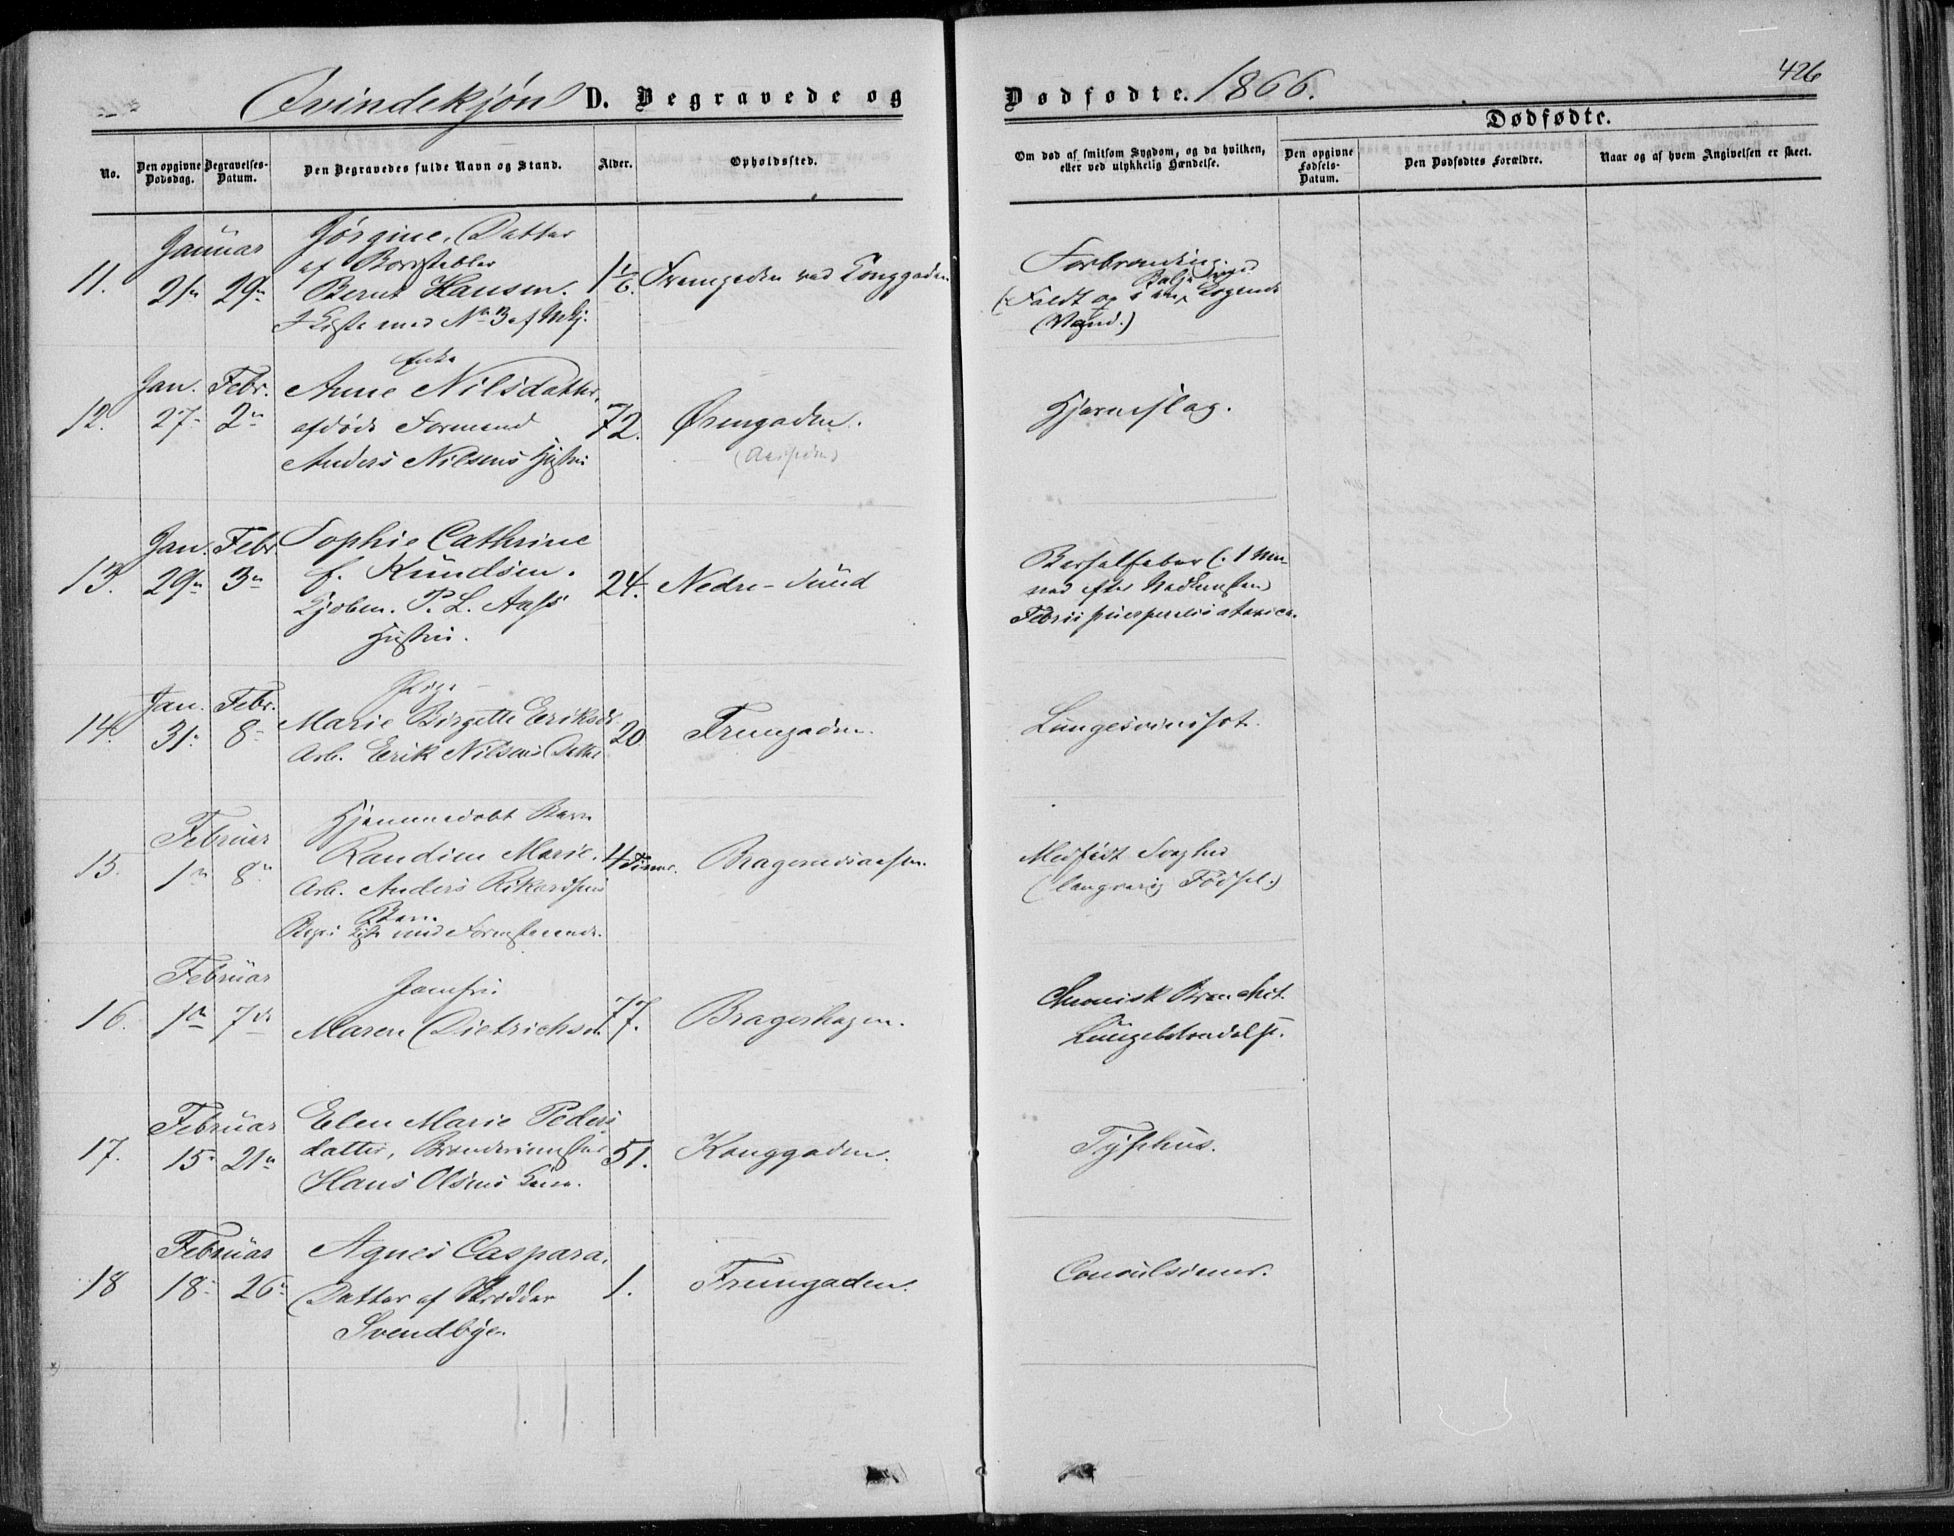 Qvindekjøn D. Begravede og Dødfødte. 1866. 426
Dødfødte.
No. Den opgivne Dødsdag. Begravelses-Datum. Den Begravedes fulde Navn og Stand. Alder. Opholdssted. Om død af smitsom Sygdom, og da hvilken, eller ved ulykkelig Hændelse. Den opgivne Fødsels-Datum. Den Dødfødtes Forældre. Naar og af hvem Angivelsen er skeet.
Januar
11. 21n 29n
Jørgine, Datter
af
Bernt Hansen.
1 1/6.
Forbrænding.
(Faldt op i en Balje kogende
Vand.)
Jan. Febr.
12. 27- 2n
Enke
Anne Nilsdatter,
afdøde Formand
Anders Nilsens Hustru
72.
Øvregaden.
Hjerneslag.
Jan. Febr.
13. 29n 3n
Sophie Cathrine
f. Knudsen.
Kjøbm. P. L. Aass
Hustru.
24.
Nedre-Sund
Barselfeber (: 1 Maa-
ned efter Nedkomsten)
Febris puerperalis
Jan. Febr.
14. 31n 8-
Pige
Marie Birgette Eriksdr.
Arb. Erik Nilsens Datter
20.
Strømgaden.
Lungesvindsot.
Februar
15. 1n 8n
Hjemmedøbt Barn
Randine Marie.
Arb. Anders Rikardsens
Barn.
4 Timer.
Bragernesaasen.
Medfødt Svaghed
(langvarig Fødsel.)
Februar
16. 1n 7de
Jomfru
Maren Dietrichson
77.
Bragerhagen.
Chronisk Bronchit.
Lungebetændelse.
Februar
17. 15- 21n
Elen Marie Peders-
datter,
Hans Olsens Kone.
51.
Konggaden.
Typhus.
Februar
18 18- 26n
Agnes Caspara,
Datter af Skrædder
Svendbye.
1.
Strømgaden.
Convulsioner.